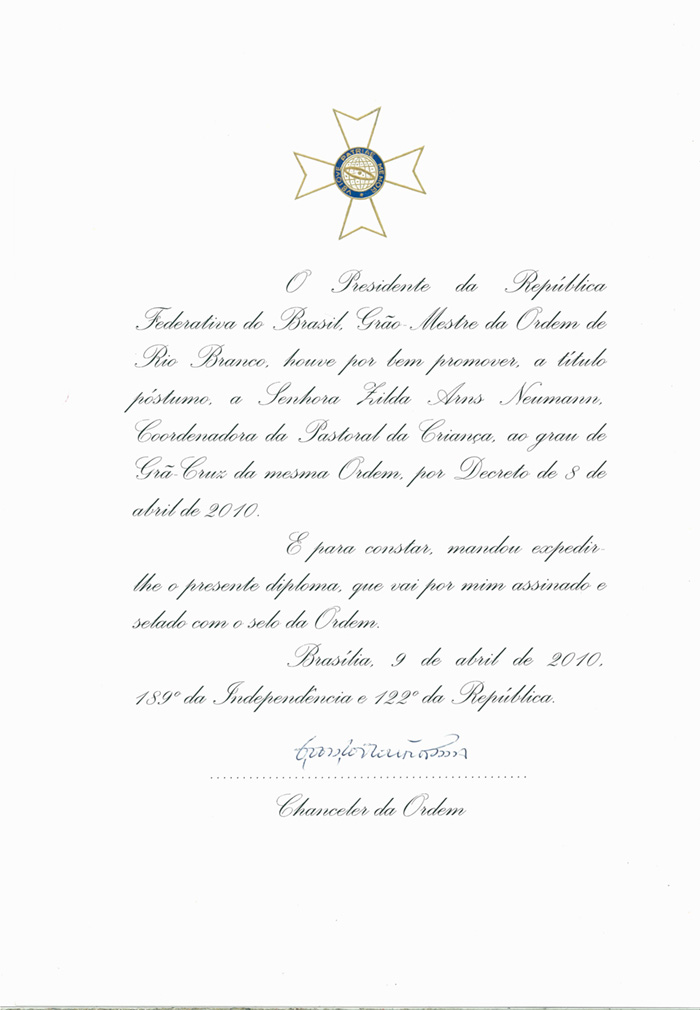 UBIQUE PATRIAE MEMOR
O Presidente da República
Federativa do Brasil, Grão-Mestre da Ordem de
Rio Branco, houve por bem promover, a título
póstumo, a Senhora Zilda Arns Neumann,
Coordenadora da Pastoral da Criança, ao grau de
Grã-Cruz da mesma Ordem, por Decreto de 8 de
abril de 2010.
E para constar, mandou expedir-
lhe o presente diploma, que vai por mim assinado e
selado com o selo da Ordem.
Brasília, 9 de abril de 2010,
189º da Independência e 122º da República.
Chanceler da Ordem